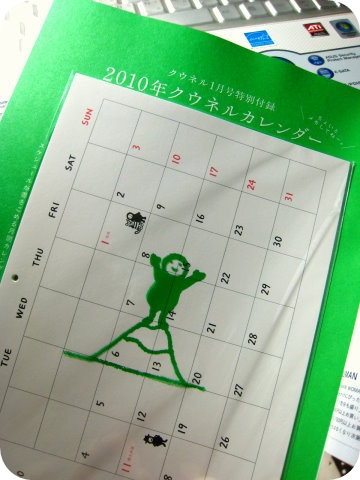 クウネル1月号特別付録
2010年クウネルカレンダー
SUN
3
10
17
24
31
SAT
2
9
16
23
30
FRI
1
8
22
29
THU
7
14
21
28
WED
6
20
27
TUE
5
12
19
26
4
11
ATI
ASUS Security
Protect Manager
E-SATA